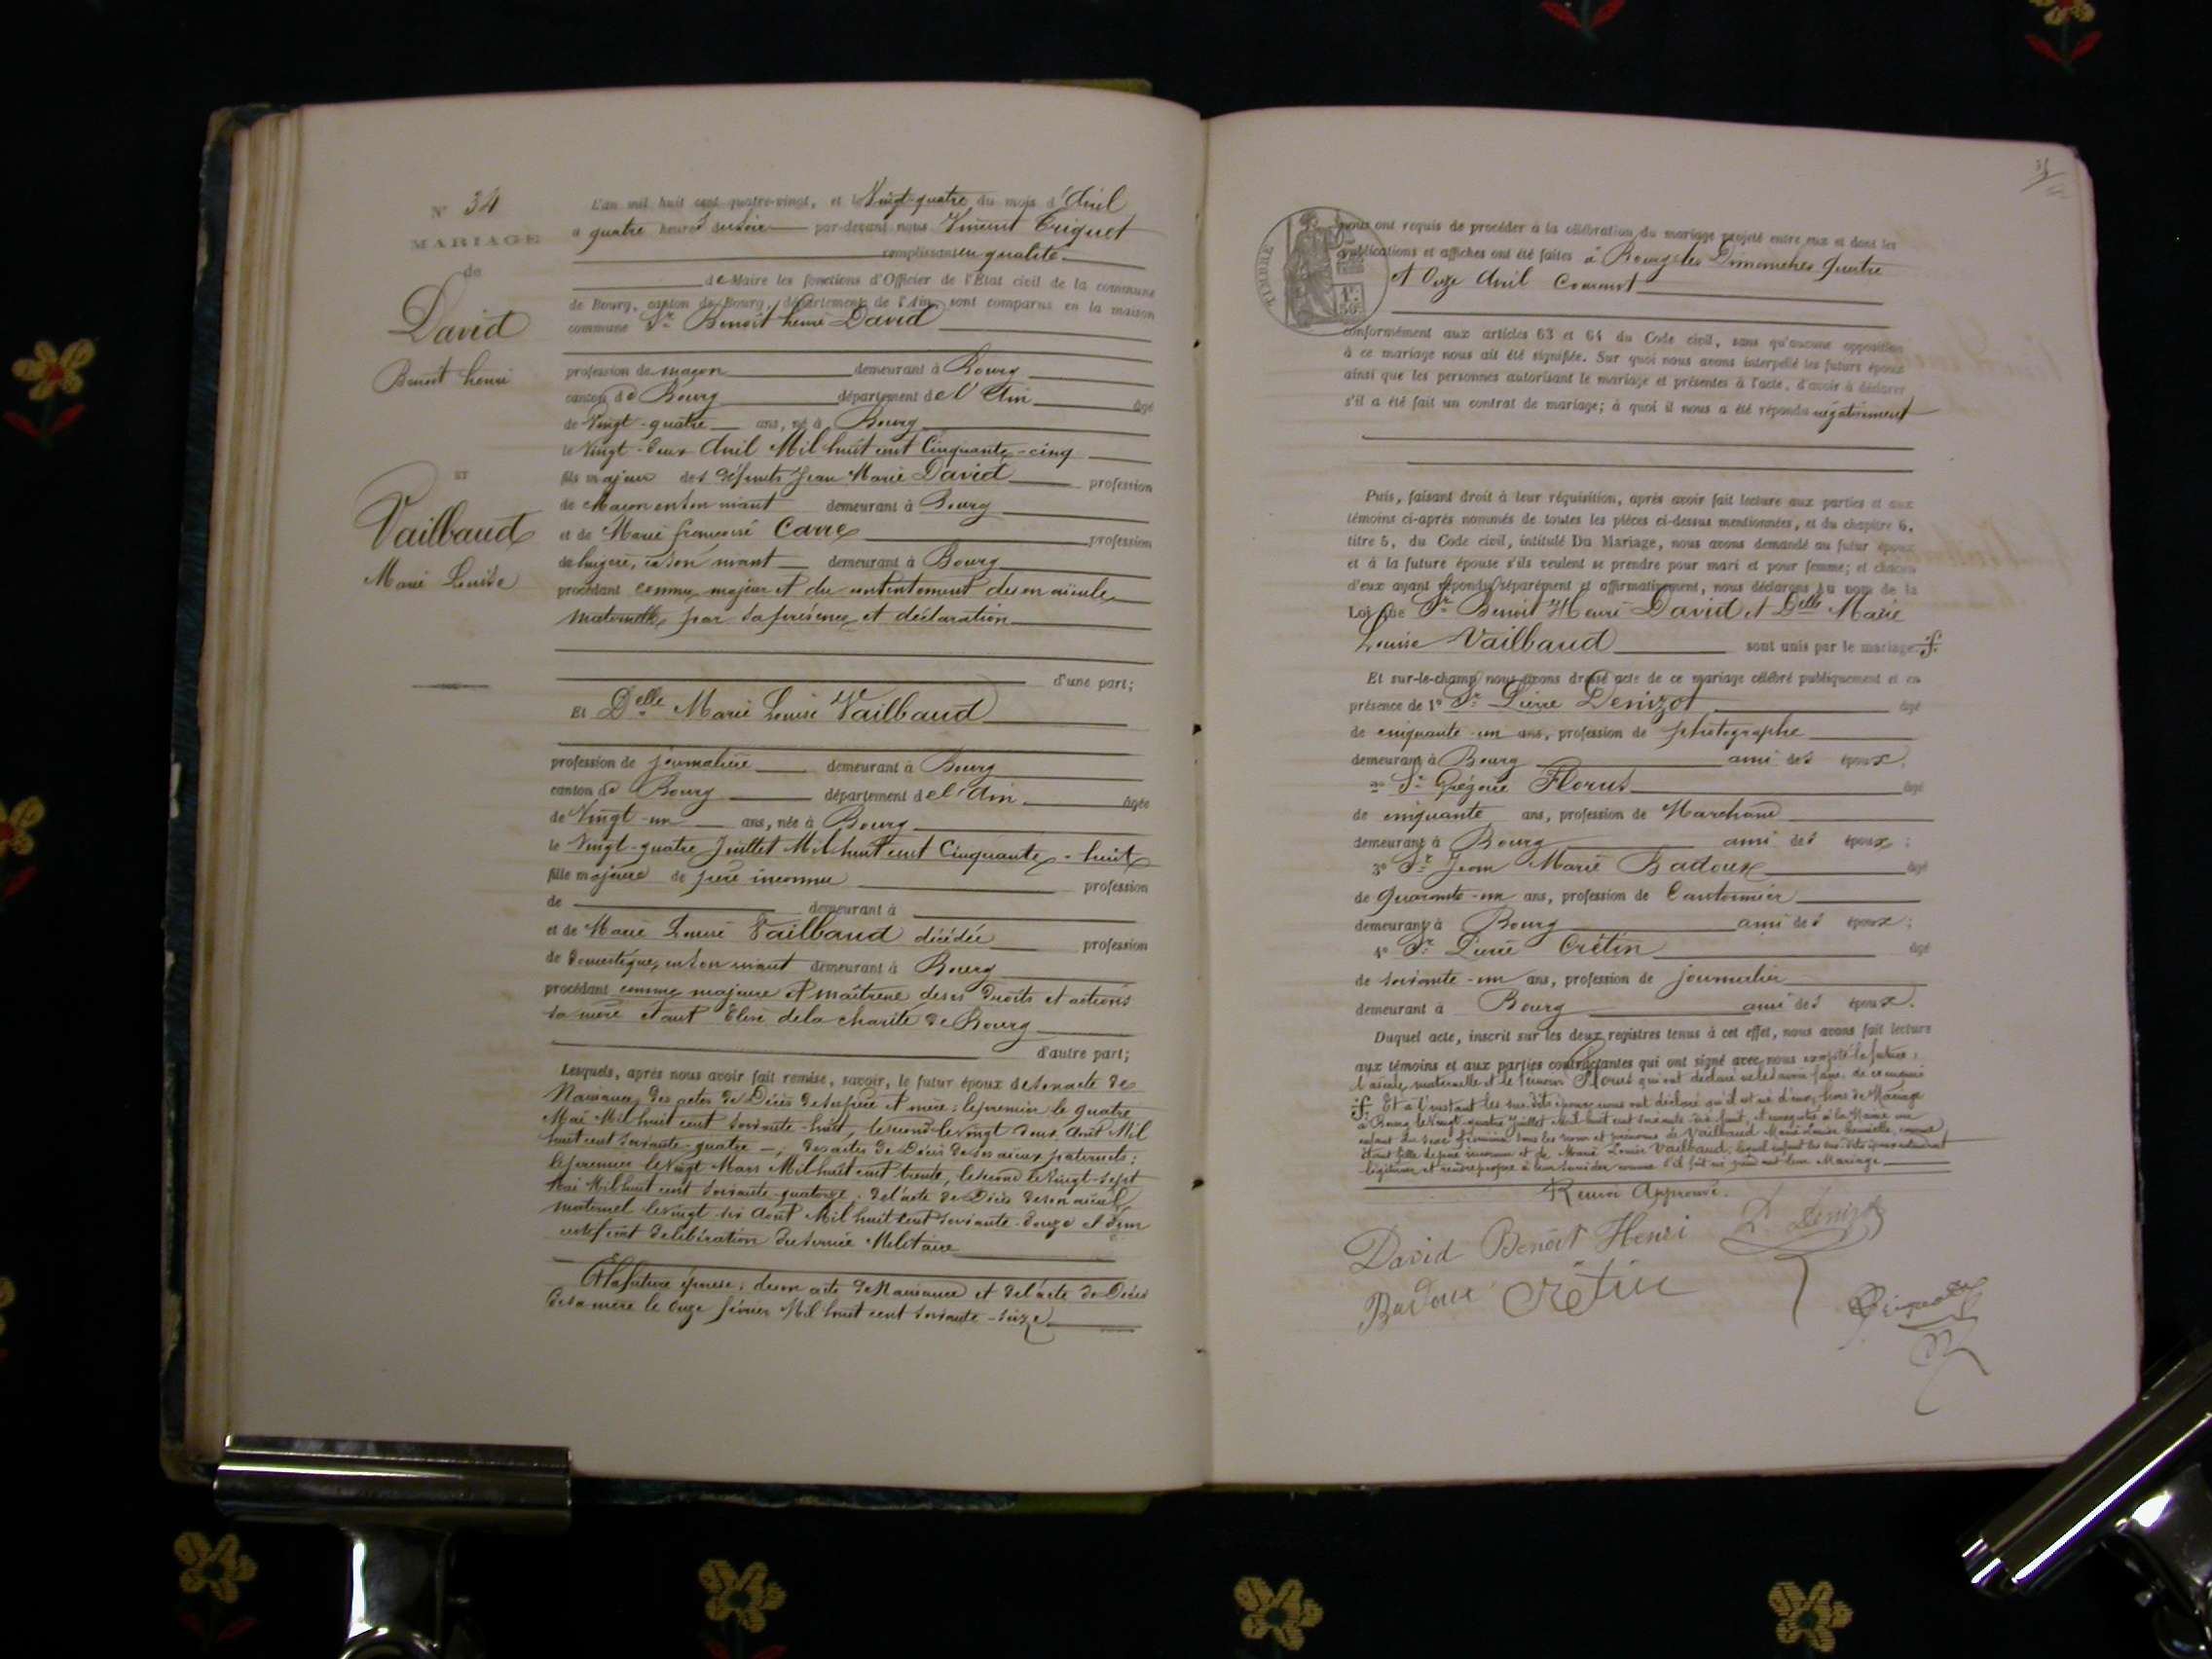 N° 34
MARIAGE
de
David
Benoit henri
ET
Vailbaud
Marie Louise
L'an mil huit cent quatre-vingt, et le Vingt-quatre du mois d'Avril
a quatre heures du soir par-devant nous Vincent Griguet
remplissant en qualité
de Maire les fonctions d'Officier de l'État civil de la commune
de Bourg, canton de Bourg, département de l'Ain, sont comparus en la maison
commune Sr Benoît henri David
profession de maçon demeurant à Bourg
canton de Bourg département de l'Ain âgé
de Vingt-quatre ans, né à Bourg
le Vingt-deux Avril Mil huit cent Cinquante-cinq
fils majeur des défunts Jean Marie David profession
de Maçon en son vivant demeurant à Bourg
et de Marie françoise Carre profession
de lingère, en son vivant demeurant à Bourg
procédant comme majeur et du consentement de son aïeule
maternelle, par sa présence et déclaration
d'une part;
Et Delle Marie Louise Vailbaud
profession de journalière demeurant à Bourg
canton de Bourg département de l'Ain âgée
de Vingt-un ans, née à Bourg
le Vingt-quatre Juillet Mil huit cent Cinquante-huit
fille majeure de père inconnu profession
de demeurant à
et de Marie Louise Vailbaud décédée profession
de domestique, en son vivant demeurant à Bourg
procédant comme majeure et maîtresse de ses droits et actions
sa mère étant Elève de la charité de Bourg
d'autre part;
Lesquels, après nous avoir fait remise, savoir, le futur époux de son acte de
Naissance, des actes de Décès de ses père et mère: le premier le quatre
Mai Mil huit cent soixante-huit, le second le vingt deux Août Mil
huit cent soixante-quatre; des actes de Décès de ses aïeux paternels:
le premier le Vingt Mars Mil huit cent trente, le second le Vingt-sept
Mai Mil huit cent soixante-quatorze; de l'acte de Décès de son aïeul
maternel le vingt-six Août Mil huit cent soixante-douze et d'un
certificat de libération du service Militaire
Et la future épouse: de son acte de Naissance et de l'acte de Décès
de sa mère le Onze février Mil huit cent soixante-seize
TIMBRE
nous ont requis de procéder à la célébration du mariage projeté entre eux et dont les
publications et affiches ont été faites à Bourg les Dimanches Quatre
et Onze Avril Courant
conformément aux articles 63 et 64 du Code civil, sans qu'aucune opposition
à ce mariage nous ait été signifiée. Sur quoi nous avons interpellé les futurs époux
ainsi que les personnes autorisant le mariage et présentes à l'acte, d'avoir à déclarer
s'il a été fait un contrat de mariage; à quoi il nous a été répondu négativement
Puis, faisant droit à leur réquisition, après avoir fait lecture aux parties et aux
témoins ci-après nommés de toutes les pièces ci-dessus mentionnées, et du chapitre 6,
titre 5, du Code civil, intitulé Du Mariage, nous avons demandé au futur époux
et à la future épouse s'ils veulent se prendre pour mari et pour femme; et chacun
d'eux ayant répondu séparément et affirmativement, nous déclarons au nom de la
Loi que Sr Benoit Henri David et Delle Marie
Louise Vailbaud sont unis par le mariage
Et sur-le-champ nous avons dressé acte de ce mariage célébré publiquement et en
présence de 1° Sr Pierre Denizot âgé
de cinquante-un ans, profession de photographe
demeurant à Bourg ami des époux,
2° Sr Grégoire Florus âgé
de cinquante ans, profession de Marchand
demeurant à Bourg ami des époux;
3° Sr Jean Marie Badoux âgé
de Quarante-un ans, profession de Cantonnier
demeurant à Bourg ami des époux;
4° Sr Pierre Crétin âgé
de soixante-un ans, profession de journalier
demeurant à Bourg ami des époux.
Duquel acte, inscrit sur les deux registres tenus à cet effet, nous avons fait lecture
aux témoins et aux parties contractantes qui ont signé avec nous excepté la future,
l'aïeule maternelle et le témoin Florus qui ont déclaré ne le savoir faire, de ce enquis
Et à l'instant les susdits époux nous ont déclaré qu'il est né d'eux, hors de Mariage
à Bourg le Vingt-quatre Juillet Mil huit cent soixante-dix-huit, et enregistré à la Mairie un
enfant du sexe féminin sous les noms et prénoms de Vailbaud Marie Louise comme
étant fille de père inconnu et de Marie Louise Vailbaud, lequel enfant les susdits époux
légitimer et rendre propre à leur succéder comme s'il fut né pendant leur Mariage
Renvoi Approuvé.
David Benoît Henri
P. Denizot
Badoux Crétin